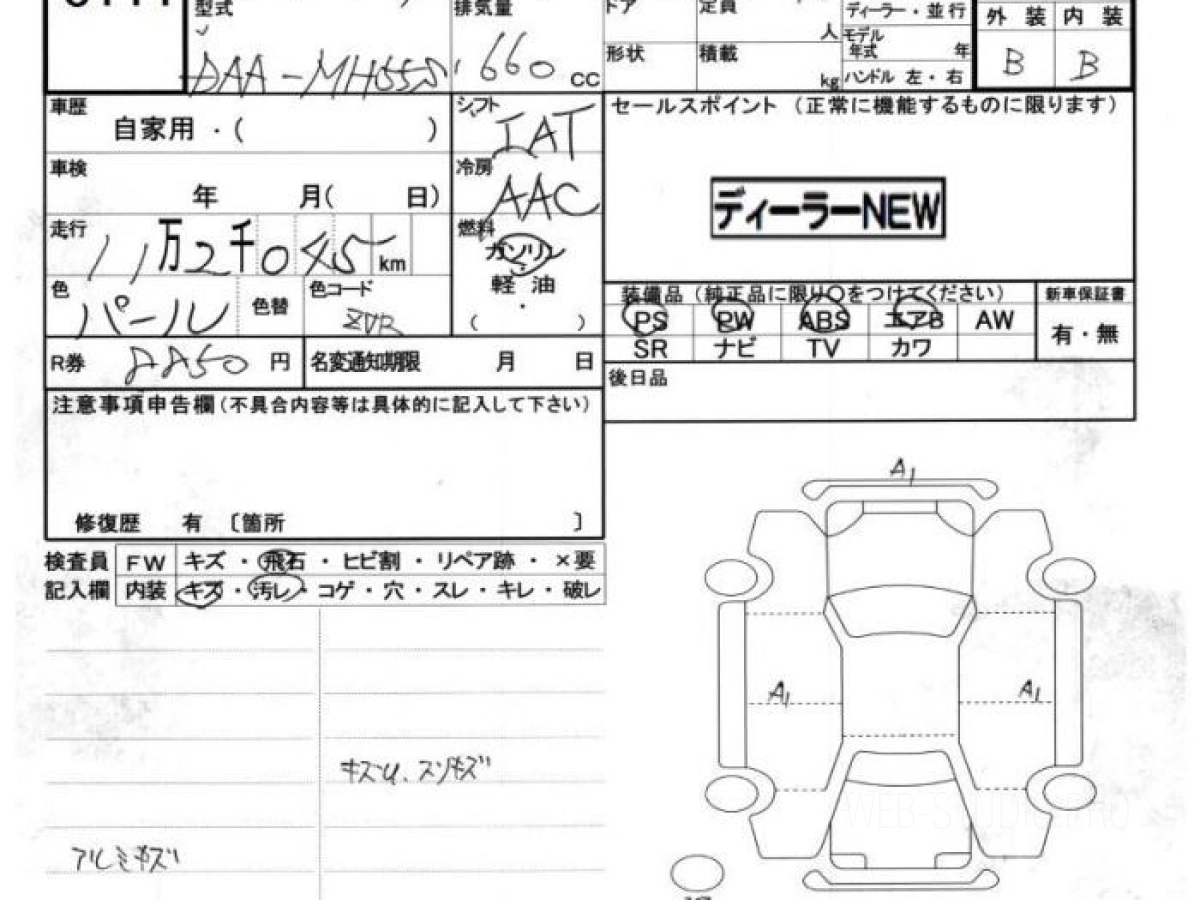 型式
DAA-MH55S
排気量
660 CC
ドア
定員
人
ディーラー・並行
モデル年式 年
形状
積載
kg
ハンドル 左・右
外装 内装
B B
車歴
自家用・( )
シフト
IAT
セールスポイント (正常に機能するものに限ります)
車検
年 月( 日)
冷房
AAC
ディーラーNEW
走行
11万2千045 km
燃料
ガソリン
軽油
・
( )
色
パール
色替
色コード
ZVR
装備品 (純正品に限り○をつけてください)
PS PW ABS エアB AW
SR ナビ TV カワ
新車保証書
有・無
R券
円
名変通知期限 月 日
後日品
注意事項申告欄(不具合内容等は具体的に記入して下さい)
修復歴 有 〔箇所 〕
検査員記入欄
FW キズ・飛石・ヒビ割・リペア跡・×要
内装 キズ・汚レ・コゲ・穴・スレ・キレ・破レ
A1
A1
A1
キズU、スリキズ
アルミキズ
WEB-STUDIO